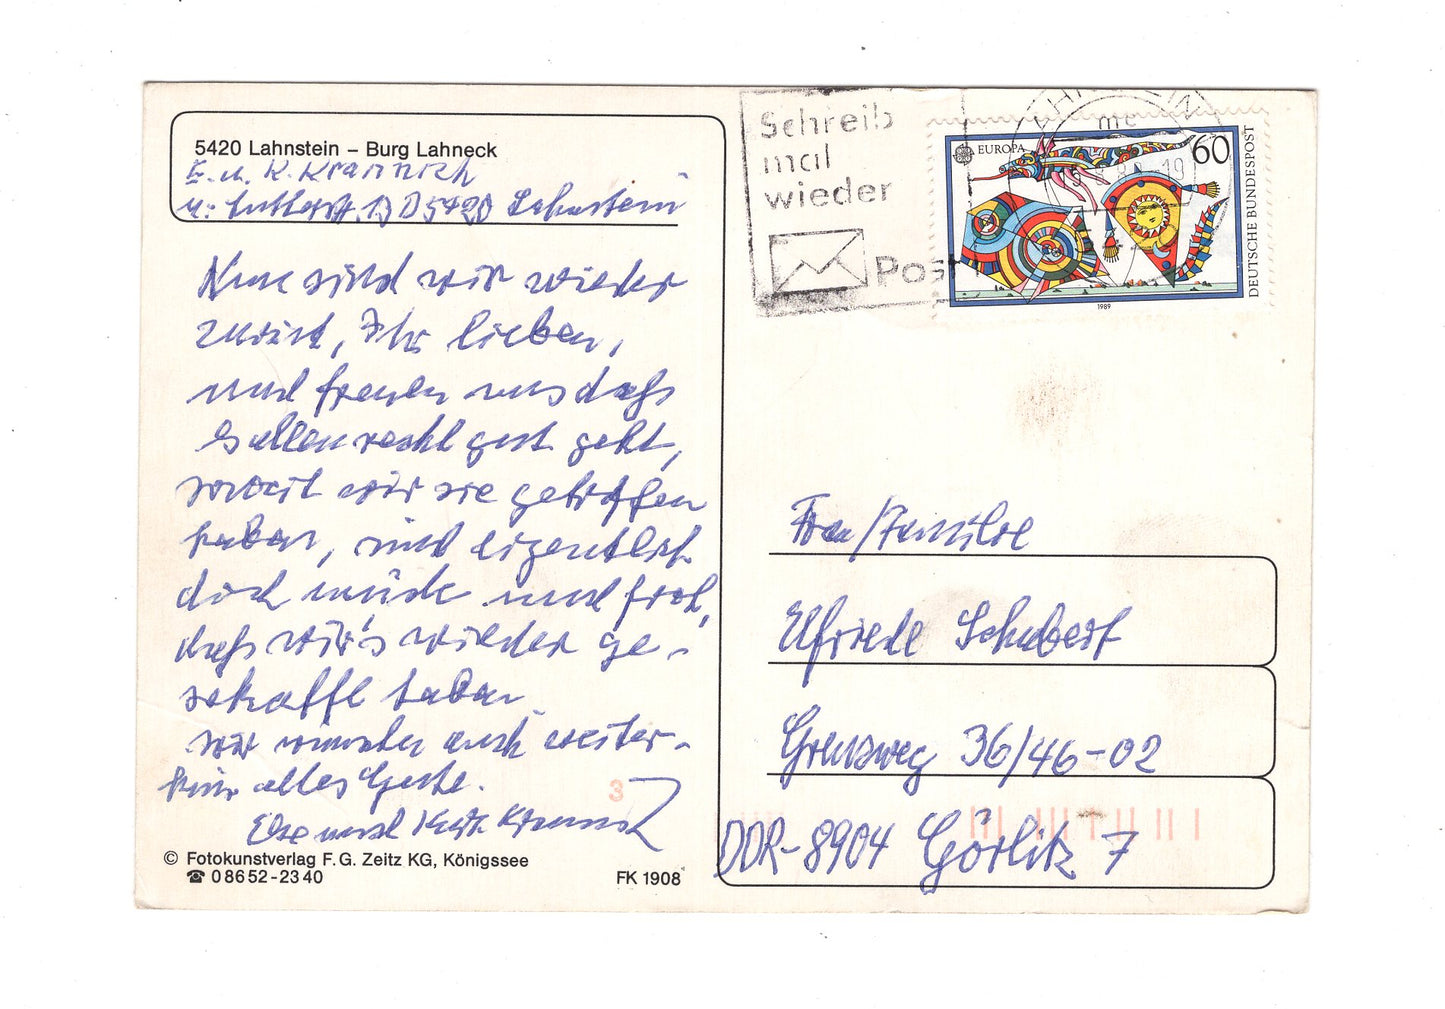 5420 Lahnstein – Burg Lahneck
E. u. K. Krannich
D 5420 Lahnstein
Nun sind wir wieder
zurück, Ihr Lieben,
und freuen uns daß
es allen recht gut geht,
soweit wir sie getroffen
haben, sind eigentlich
doch müde und froh,
daß wir's wieder ge-
schafft haben.
Wir wünschen auch weiter-
hin alles Gute.
Else und Kurt Krannich
© Fotokunstverlag F. G. Zeitz KG, Königssee
☎ 0 86 52 - 23 40
FK 1908
3
Schreib
mal
wieder
Post
EUROPA
60
DEUTSCHE BUNDESPOST
1989
Frau/Familie
Elfriede Schubert
Grenzweg 36/46-02
DDR-8904 Görlitz 7